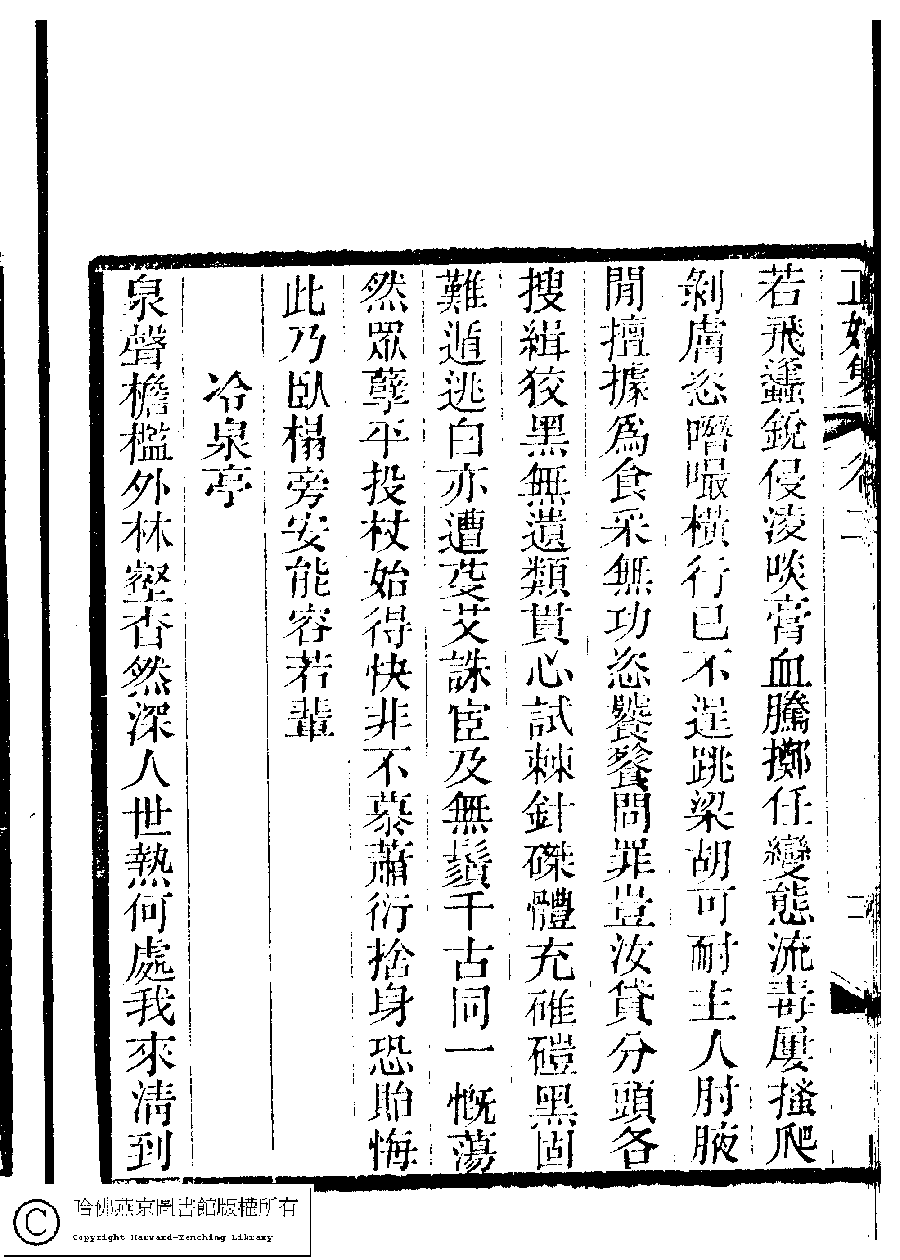 若飛蠭銳侵淩啖膏血騰擲任變態流毒屢搔爬
剝膚恣噆嘬橫行已不逞跳梁胡可耐主人肘腋
閒擅據為食采無功恣饕餮問罪豈汝貸分頭各
搜緝狡黑無遺類貫心試棘針磔體充碓磑黑固
難遁逃白亦遭芟艾誅宦及無鬚千古同一慨蕩
然眾孽平投杖始得快非不慕蕭衍捨身恐貽悔
此乃臥榻旁安能容若輩
冷泉亭
泉聲檐檻外林壑杳然深人世熱何處我來清到
哈佛燕京圖書館版權所有
Copyright Harvard-Yenching Library